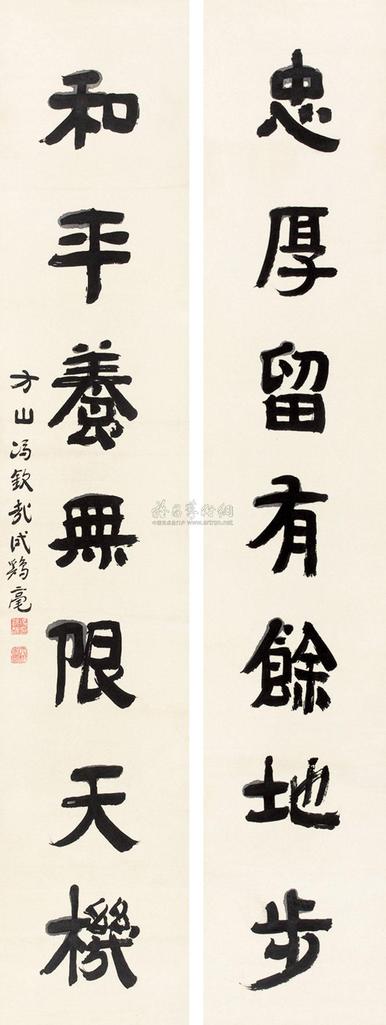 忠厚留有餘地步
和平養無限天機
方山冯钦哉戏鷄毫
雅昌藝術網
www.artron.net